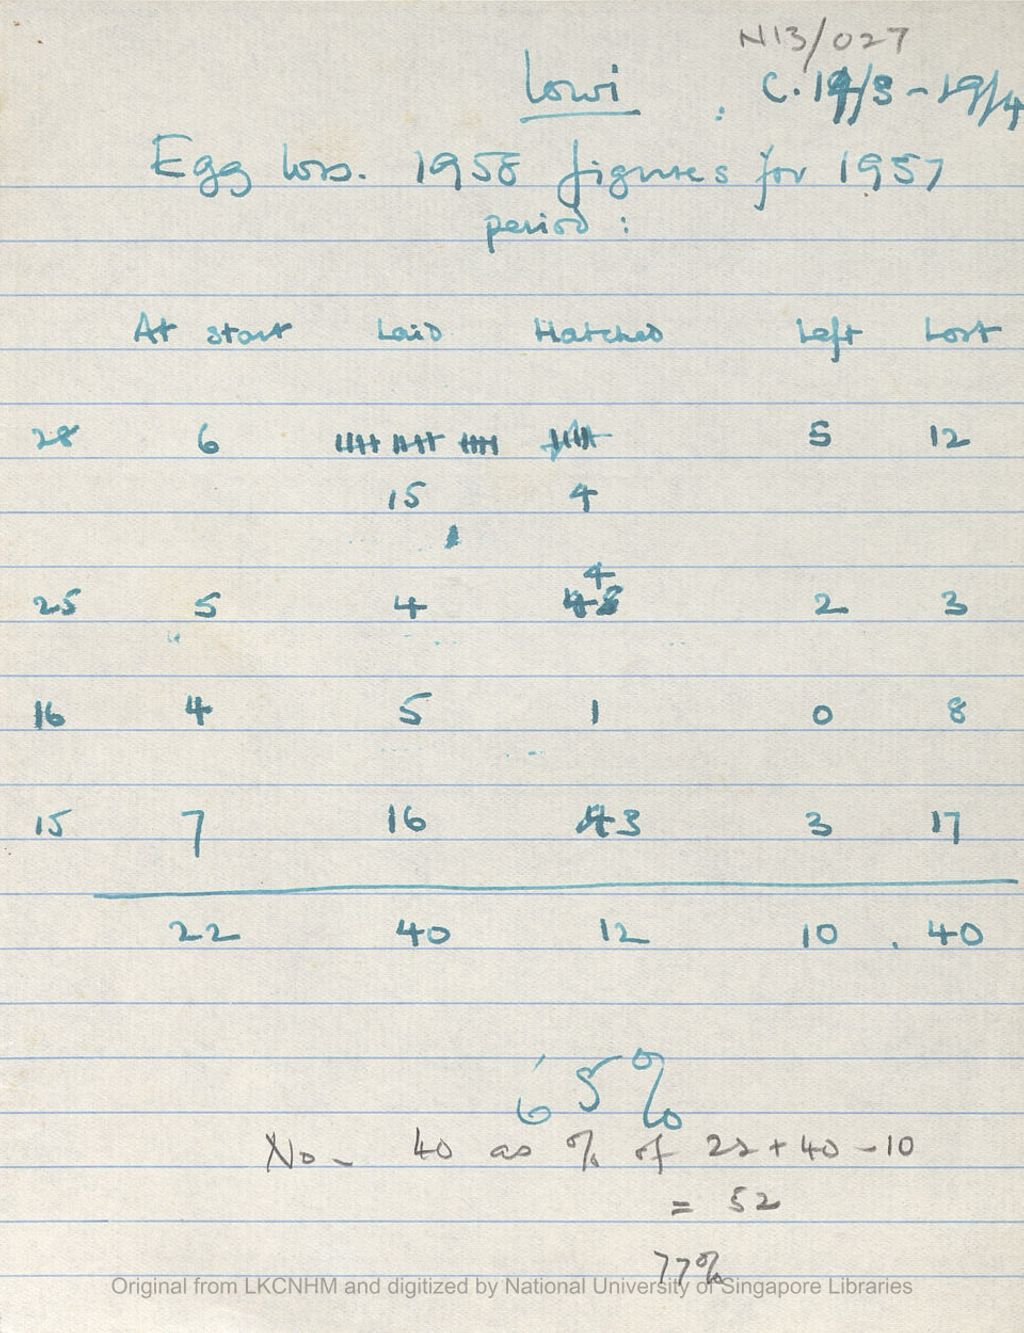 N13/027
lowi : C. 19/3 - 19/4
Egg loss. 1958 figures for 1957
period :
At start Laid Hatched Left Lost
28 6 5 12
15 4
4
25 5 4 2 3
16 4 5 1 0 8
15 7 16 3 3 17
22 40 12 10 . 40
65%
No - 40 as % of 22 + 40 - 10
= 52
77%
Original from LKCNHM and digitized by National University of Singapore Libraries